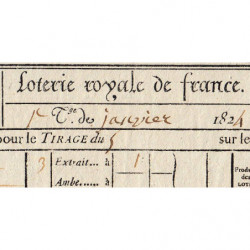 Loterie royale de france.
1er Tge des janvier 1824
pour le TIRAGE du 5 sur le
3 Extrait.... à 1
Ambe..... à
Prode
des
LOT